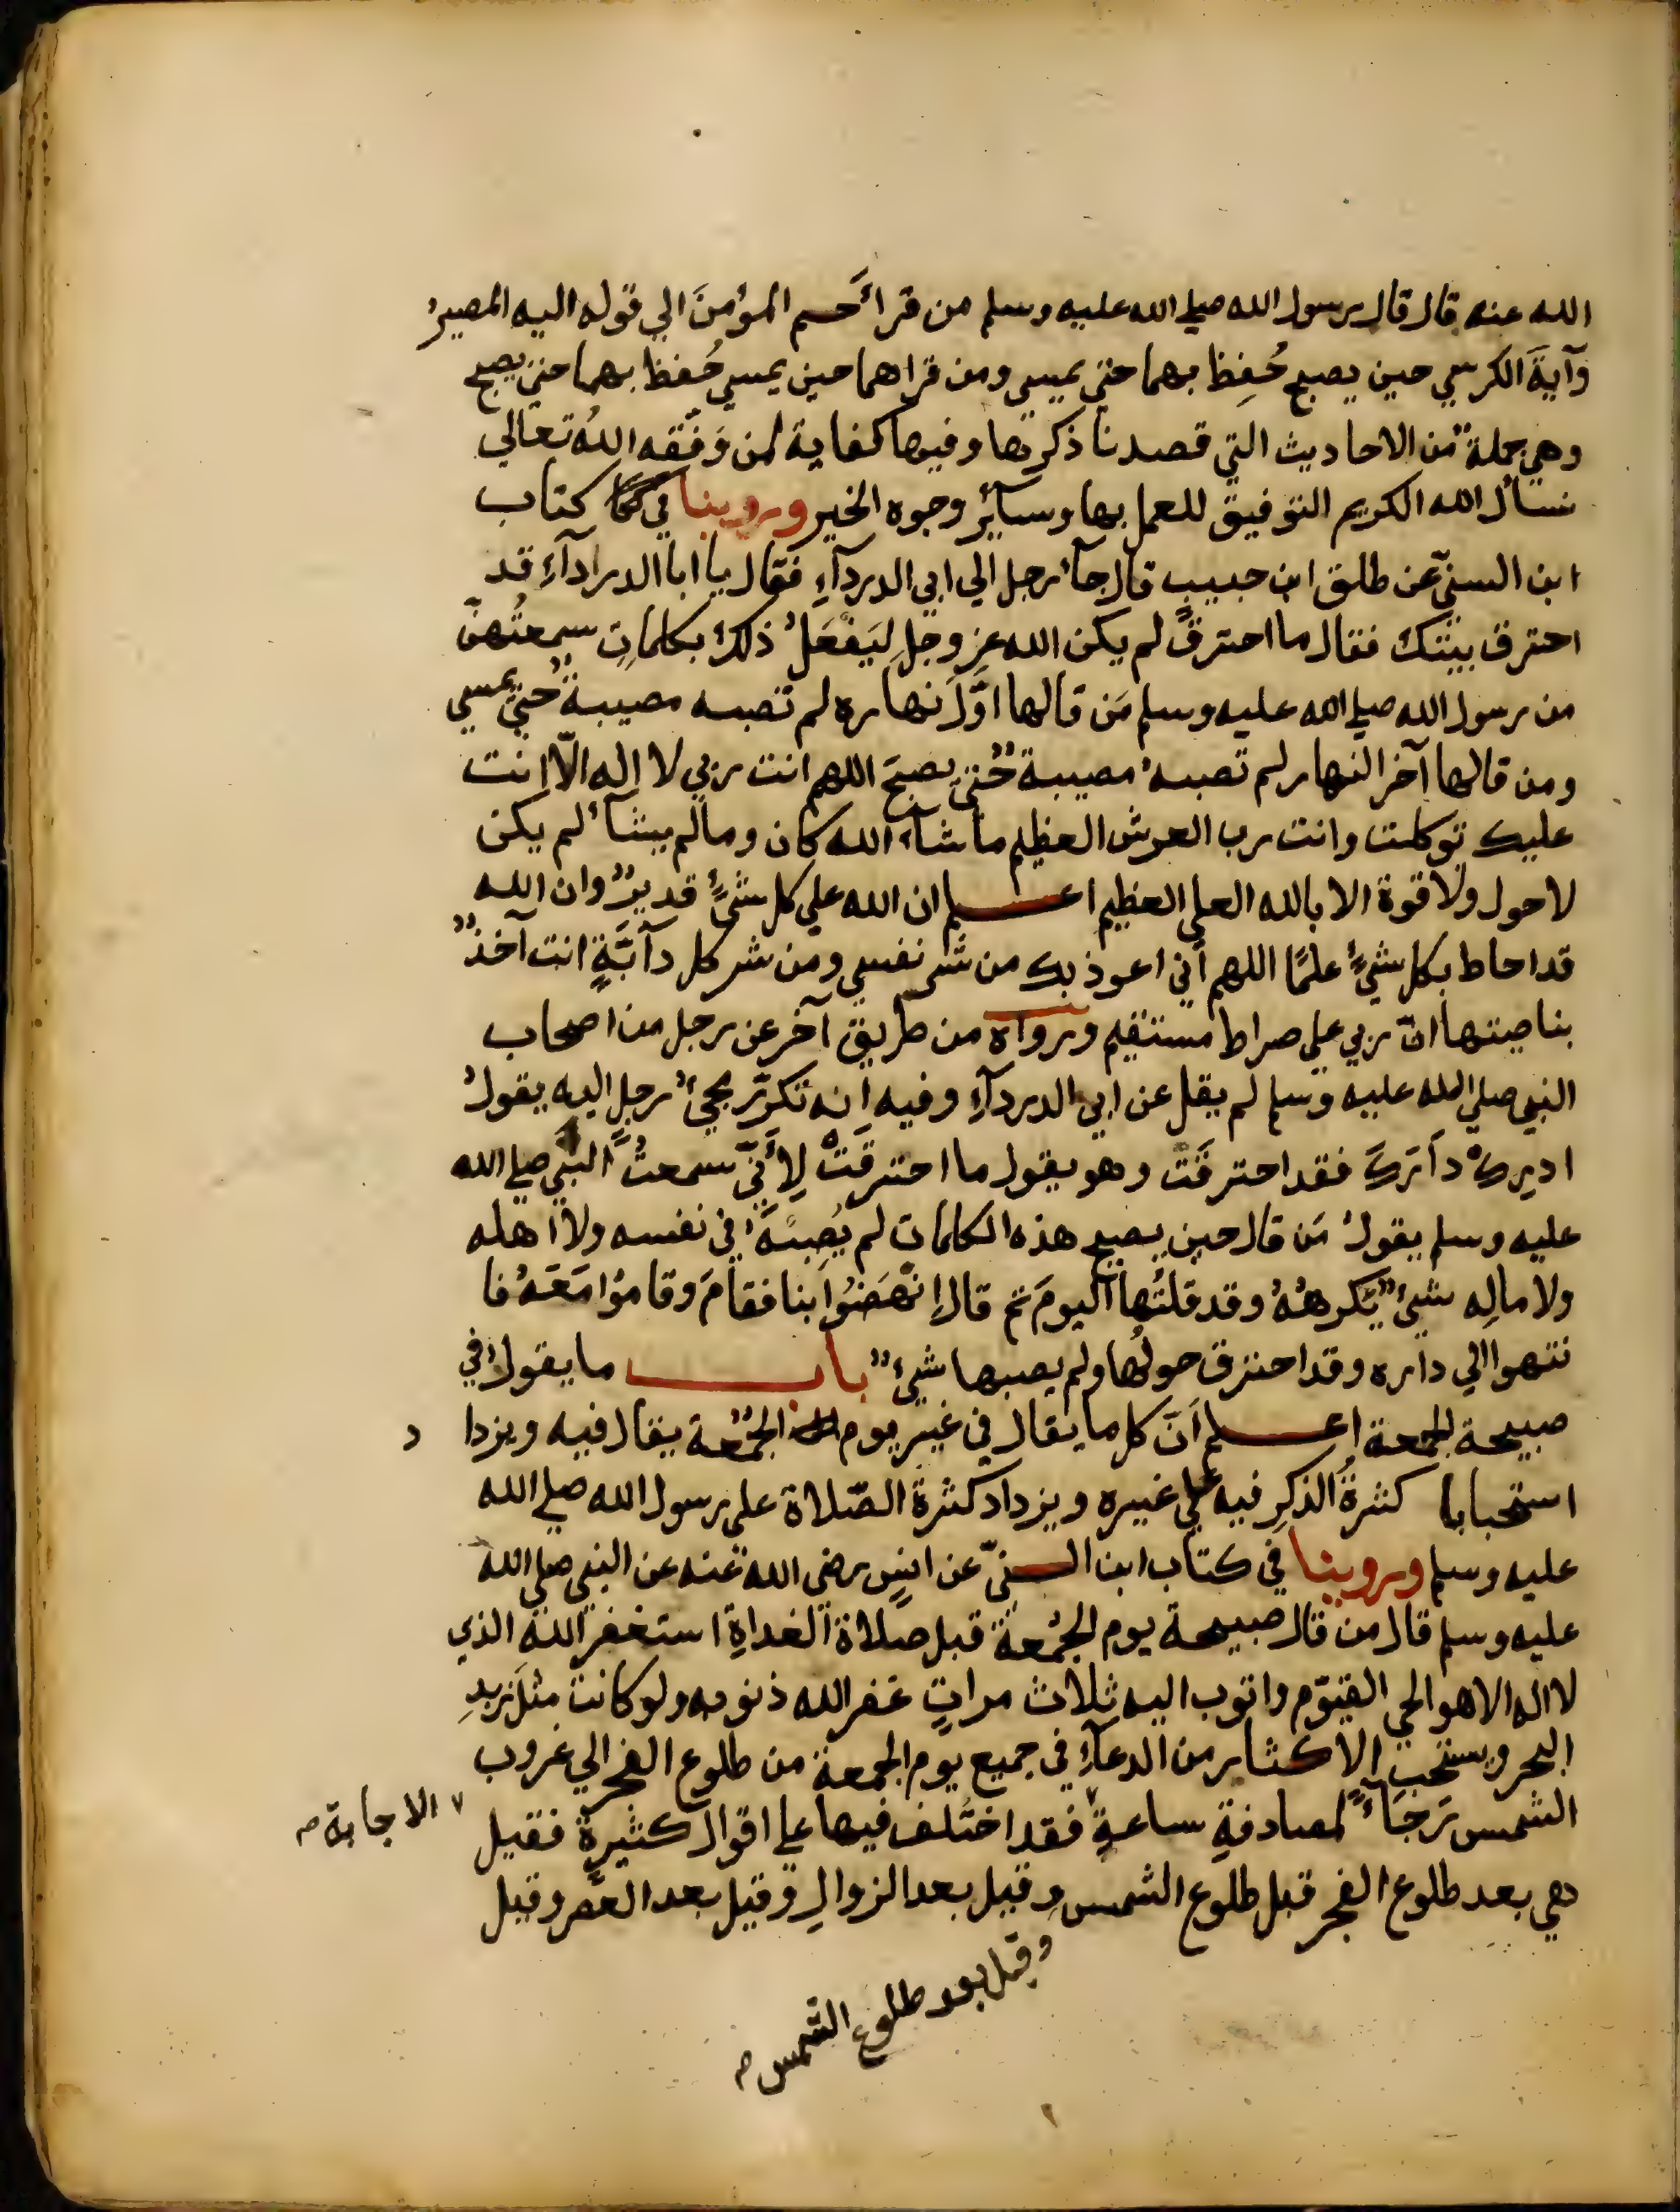 الله عنه قال قال رسول الله صلي الله عليه وسلم من قرأ حــم المؤمنَ الي قوله اليه المصيرُ
وآيةَ الكرسي حين يصبح حُفِظ بهما حتي يمسي ومن قراهما حين يمسي حُفظ بهما حتي يصبح
وهي جملةٌ من الاحاديث التي قصدنا ذكرها وفيها كفاية لمن وَفّقه اللهُ تعالي
نسأل الله الكريم التوفيق للعمل بها وسآئر وجوه الخير وروينا في كتاب
ابن السنيّ عن طلق ابن حبيبٍ قال جآء رجل الي ابي الدردآءِ فقال يا ابا الدرادآءِ قد
احترق بيتك فقال ما احترق لم يكن الله عز وجل لِيَفْعَلَ ذلك بكلماتٍ سمعتُهنّ
من رسول الله صلي الله عليه وسلم مَن قالها اوَّلَ نهاره لم تصبه مصيبةٌ حتي يمسي
ومن قالها آخر النهار لم تصبهُ مصيبةٌ حتي يصبحَ اللهم انت ربي لا اله الّا انت
عليك توكلت وانت رب العرش العظيم ما شآء الله كان وما لم يشأ لم يكن
لا حول ولا قوة الا بالله العلي العظيم اعــلم ان الله علي كل شيءٍ قديرٌ وان الله
قد احاط بكل شيءٍ علمًا اللهم اني اعوذ بك من شر نفسي ومن شر كل دآبَّةٍ انت آخذٌ
بناصيتها انّ ربي علي صراط مستقيم ورواه من طريق آخر عن رجل من اصحاب
النبي صلي الله عليه وسلم لم يقل عن ابي الدردآءِ وفيه انه تكرّر مجيءُ رجلٍ اليه يقولُ
ادرِكْ دارَكَ فقد احترقَتْ وهو يقول ما احترقَتْ لِأَنّي سمعتُ النبيَّ صلي الله
عليه وسلم يقولُ مَن قال حين يصبح هذه الكلمات لم يُصِبْهُ في نفسه ولا اهله
ولا مالِه شيءٌ يَكرهُهُ وقد قلتُها اليومَ ثم قال اِنْهَضُوا بنا فقامَ وقامُوا مَعَهُ فا
نتهوا الي داره وقد احترق حولُها ولم يصبها شيءٌ بـاب ما يقول في
صبيحة الجمعة اعــلم اَنَّ كل ما يقال في غير يوم الجُمُعة يقال فيه ويزدا د
استحبابا كثرةُ الذكرِ فيه علي غيره ويزداد كثرة الصّلاة علي رسول الله صلي الله
عليه وسلم وروينا في كتاب ابن السنيّ عن انسٍ رضي الله عنه عن النبي صلي الله
عليه وسلم قال من قال صبيحة يوم الجُمْعة قبل صلاة الغداةِ استغفر الله الذي
لا اله الا هو الحي القيّوم واتوب اليه ثلاث مراتٍ غفر الله ذنوبه ولو كانت مثلَ زبدِ
البحر ويستحب الاكثار من الدعآءِ في جميع يوم الجمعة من طلوع الفجر الي غروب
الشمس رَجَآءً لمصادفةِ ساعةِ ٧ فقد اختُلف فيها علي اقوال كثيرة فقيل
٧ الاجابة م
هي بعد طلوع الفجر قبل طلوع الشمس وقيل بعد الزوالِ وقيل بعد العصر وقيل
وقيل بعد طلوع الشمس م